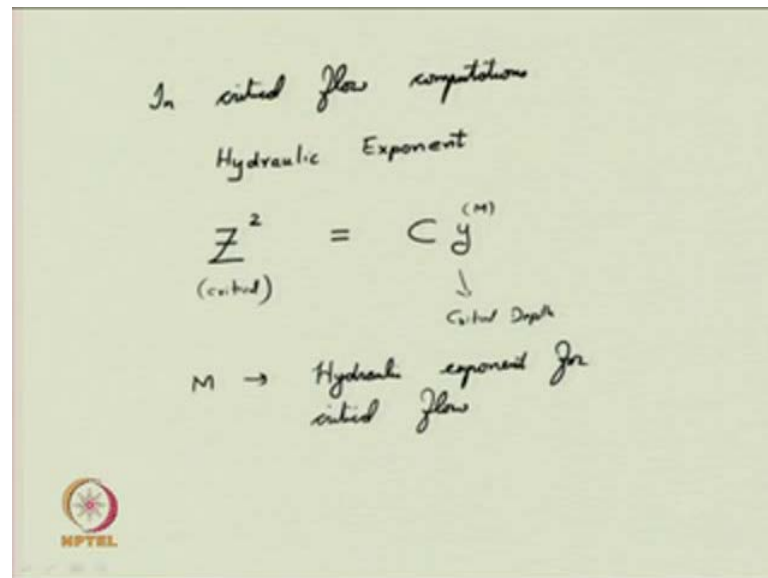 In critical flow computations
Hydraulic Exponent
Z² = C y⁽ᴹ⁾
(critical)
Critical Depth
M → Hydraulic exponent for
critical flow
NPTEL